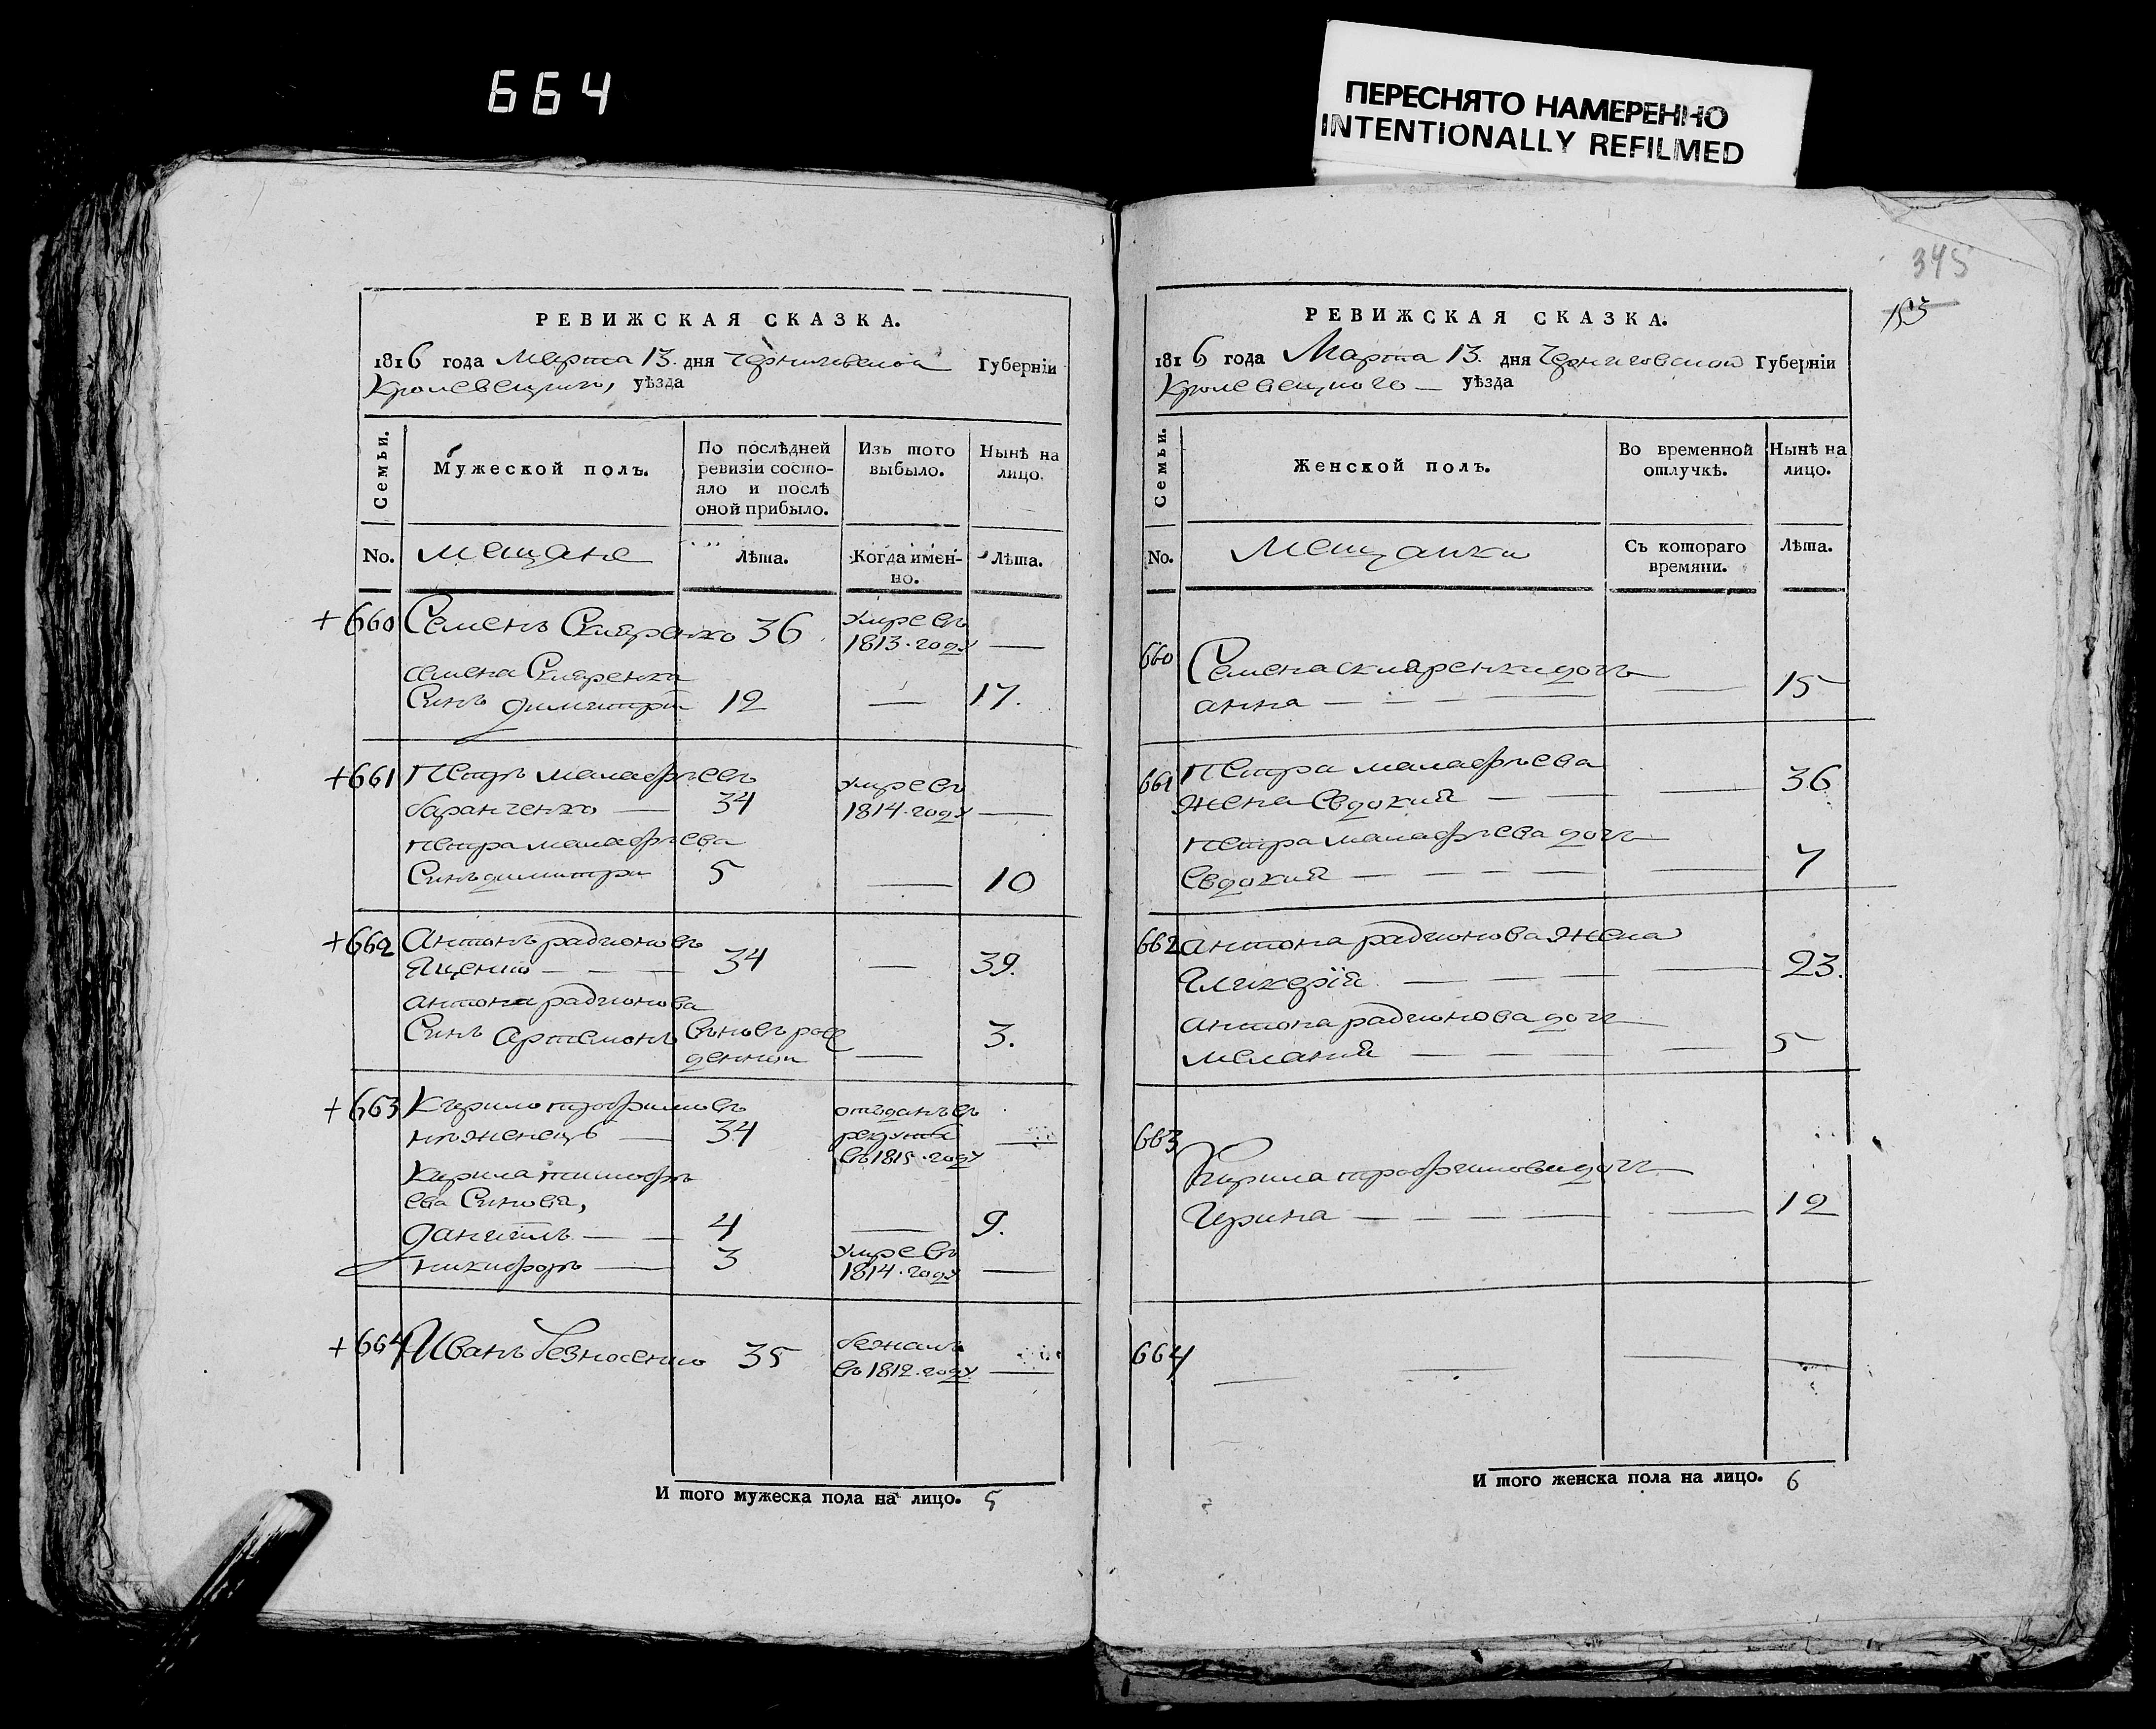 664
ПЕРЕСНЯТО НАМЕРЕННО
INTENTIONALLY REFILMED
345
РЕВИЖСКАЯ СКАЗКА.
1816 года Марта 13. дня Черниговской Губерніи
Кролевецкого, уѣзда
Семьи.
Мужеской полъ.
По послѣдней ревизіи состояло и послѣ оной прибыло.
Изъ того выбыло.
Нынѣ на лицо.
No. мещане Лѣта. Когда именно. Лѣта.
+660 Семенъ Скляренко 36 умре въ
1813. году —
семена Скляренка
Синъ димитрий 12 — 17.
+661 петръ малафѣевъ умре въ
баранченко — 34 1814. году —
петра малафѣева
Синъ димитри 5 — 10
+662 Антонъ радионовъ
Яценко — — — 34 — 39.
антона радионова
Синъ Артемонъ вновь рож 3.
денний —
+663 Кирило трофимовъ отъданъ въ
нѣженецъ — 34 рекруты —
въ 1815. году
Кирила тимофѣ
ева Синовя,
даниилъ — — 4 — 9.
никифоръ — 3 умре въ
1814. году —
+664 Иванъ безносенко 35 бежалъ
въ 1812. году —
И того мужеска пола на лицо. 5
РЕВИЖСКАЯ СКАЗКА.
1816 года Марта 13. дня Черниговской Губерніи
Кролевецкого — уѣзда
Семьи.
Женской полъ.
Во временной отлучкѣ.
Нынѣ на лицо.
No. Мещанки Съ котораго времяни. Лѣта.
660 Семена скляренки дочь
анна — — — — — 15
661 петра малафѣева
жена Евдокия — — — 36
петра малафѣева дочь
Евдокия — — — — — 7
662 антона радионова жена
Гликерія — — — — 23.
антона радионова дочь
мелания — — — — 5
663
Кирила трофимова дочь
Ирина — — — — — 12
664 — — — —
И того женска пола на лицо. 6